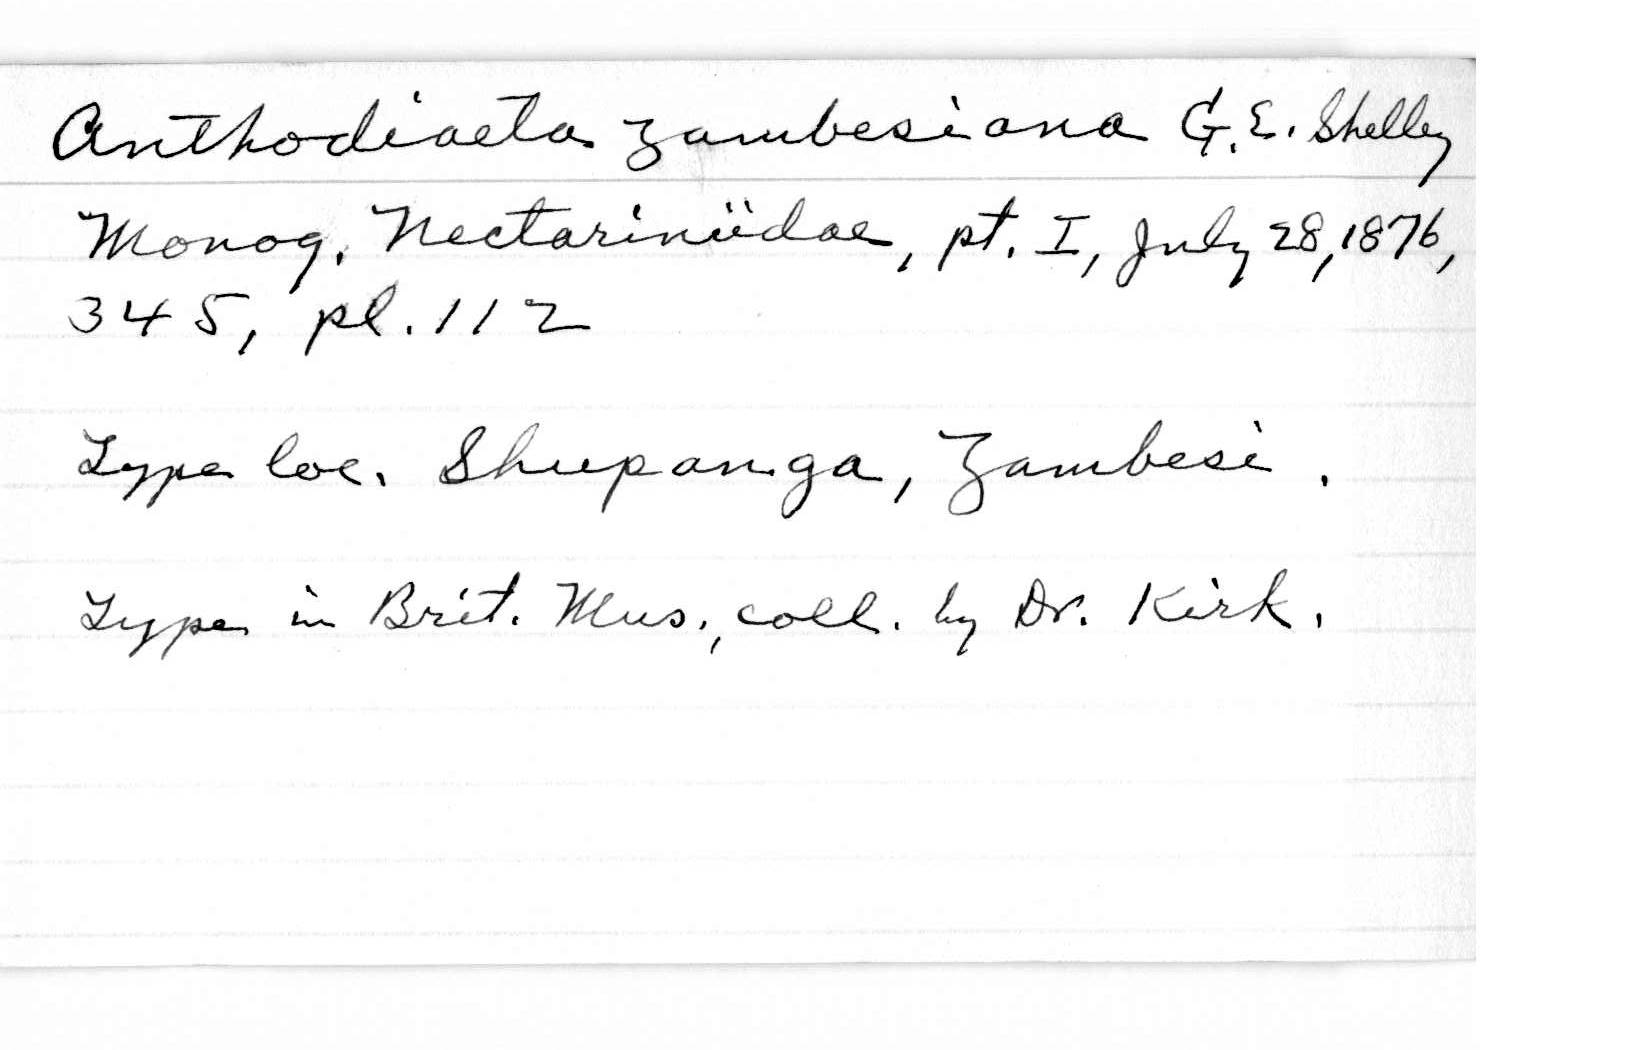 Anthodiaeta zambesiana G. E. Shelley
Monog. Nectariniidae, pt. I, July 28, 1876,
345, pl. 112
Type loc. Shupanga, Zambesi.
Type in Brit. Mus., coll. by Dr. Kirk.